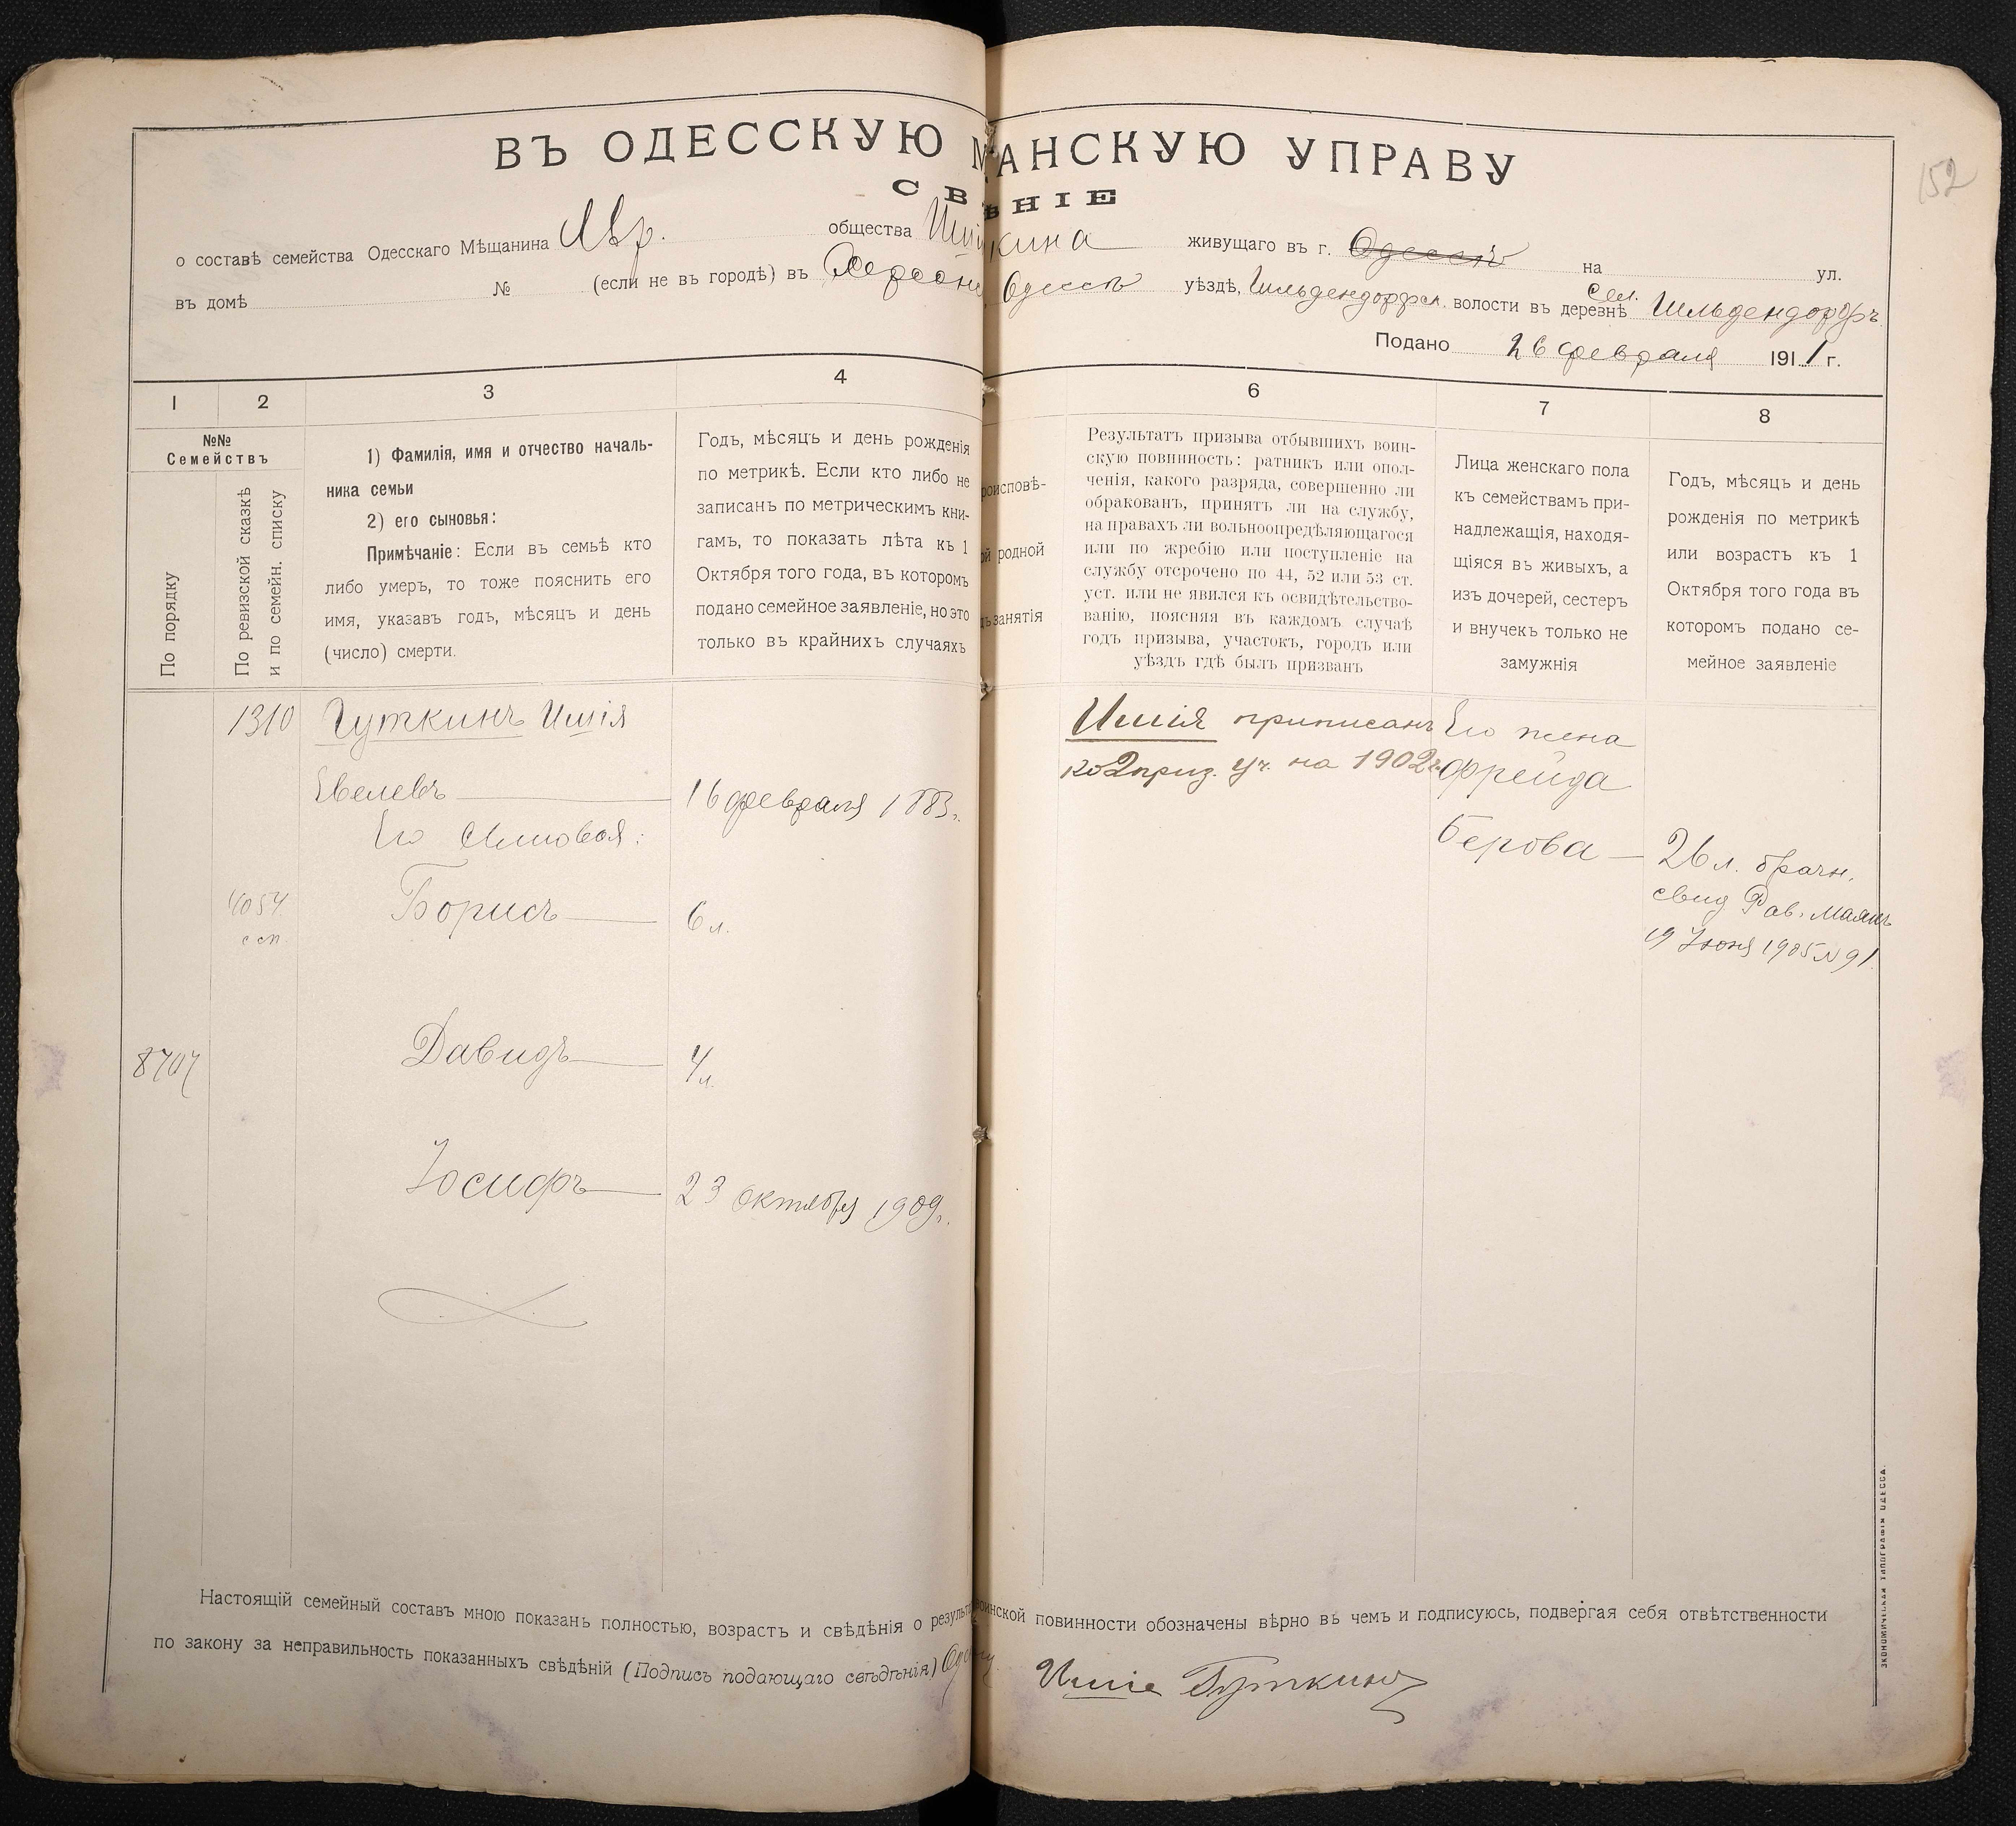 152
ВЪ ОДЕССКУЮ М АНСКУЮ УПРАВУ
СВ ѢНІЕ
о составѣ семейства Одесскаго Мѣщанина Евр. общества Иші кина живущаго въ г. Одессѣ на ул.
въ домѣ № (если не въ городѣ) въ Херсон Одесск уѣздѣ, Гильдендорфск. волости въ деревнѣ сел. Гильдендорфъ
Подано 26 февраля 1911 г.
1 2 3 4 6 7 8
№№
Семействъ
По порядку
По ревизской сказкѣ
и по семейн. списку
1) Фамилія, имя и отчество началь-
ника семьи
2) его сыновья:
Примѣчаніе: Если въ семьѣ кто
либо умеръ, то тоже пояснить его
имя, указавъ годъ, мѣсяцъ и день
(число) смерти.
Годъ, мѣсяцъ и день рожденія
по метрикѣ. Если кто либо не
записанъ по метрическимъ кни-
гамъ, то показать лѣта къ 1
Октября того года, въ которомъ
подано семейное заявленіе, но это
только въ крайнихъ случаяхъ
роисповѣ-
ой родной
дъ занятія
Результатъ призыва отбывшихъ воин-
скую повинность: ратникъ или опол-
ченія, какого разряда, совершенно ли
обракованъ, принятъ ли на службу,
на правахъ ли вольноопредѣляющагося
или по жребію или поступленіе на
службу отсрочено по 44, 52 или 53 ст.
уст. или не явился къ освидѣтельство-
ванію, поясняя въ каждомъ случаѣ
годъ призыва, участокъ, городъ или
уѣздъ гдѣ былъ призванъ
Лица женскаго пола
къ семействамъ при-
надлежащія, находя-
щіяся въ живыхъ, а
изъ дочерей, сестеръ
и внучекъ только не
замужнія
Годъ, мѣсяцъ и день
рожденія по метрикѣ
или возрастъ къ 1
Октября того года въ
которомъ подано се-
мейное заявленіе
1310 Гуткинъ Ишія
Евелевъ 16 февраля 1883 г.
Его Сыновья:
4054 Борисъ 6 л.
с сп
8707 Давидъ 4 л.
Іосифъ 23 октября 1909 г.
Ишія приписанъ
ко 2 приз. уч. на 1902 г.
Его жена
Фрейда
Берова — 26 л. брачн.
свид Рав. Маякъ
19 Іюня 1905 № 91
Настоящій семейный составъ мною показанъ полностью, возрастъ и свѣдѣнія о результа воинской повинности обозначены вѣрно въ чемъ и подписуюсь, подвергая себя отвѣтственности
по закону за неправильность показанныхъ свѣдѣній (Подпись подающаго свѣдѣнія) Ишіе Гуткинъ
ЭКОНОМИЧЕСКАЯ ТИПОГРАФІЯ ОДЕССА.